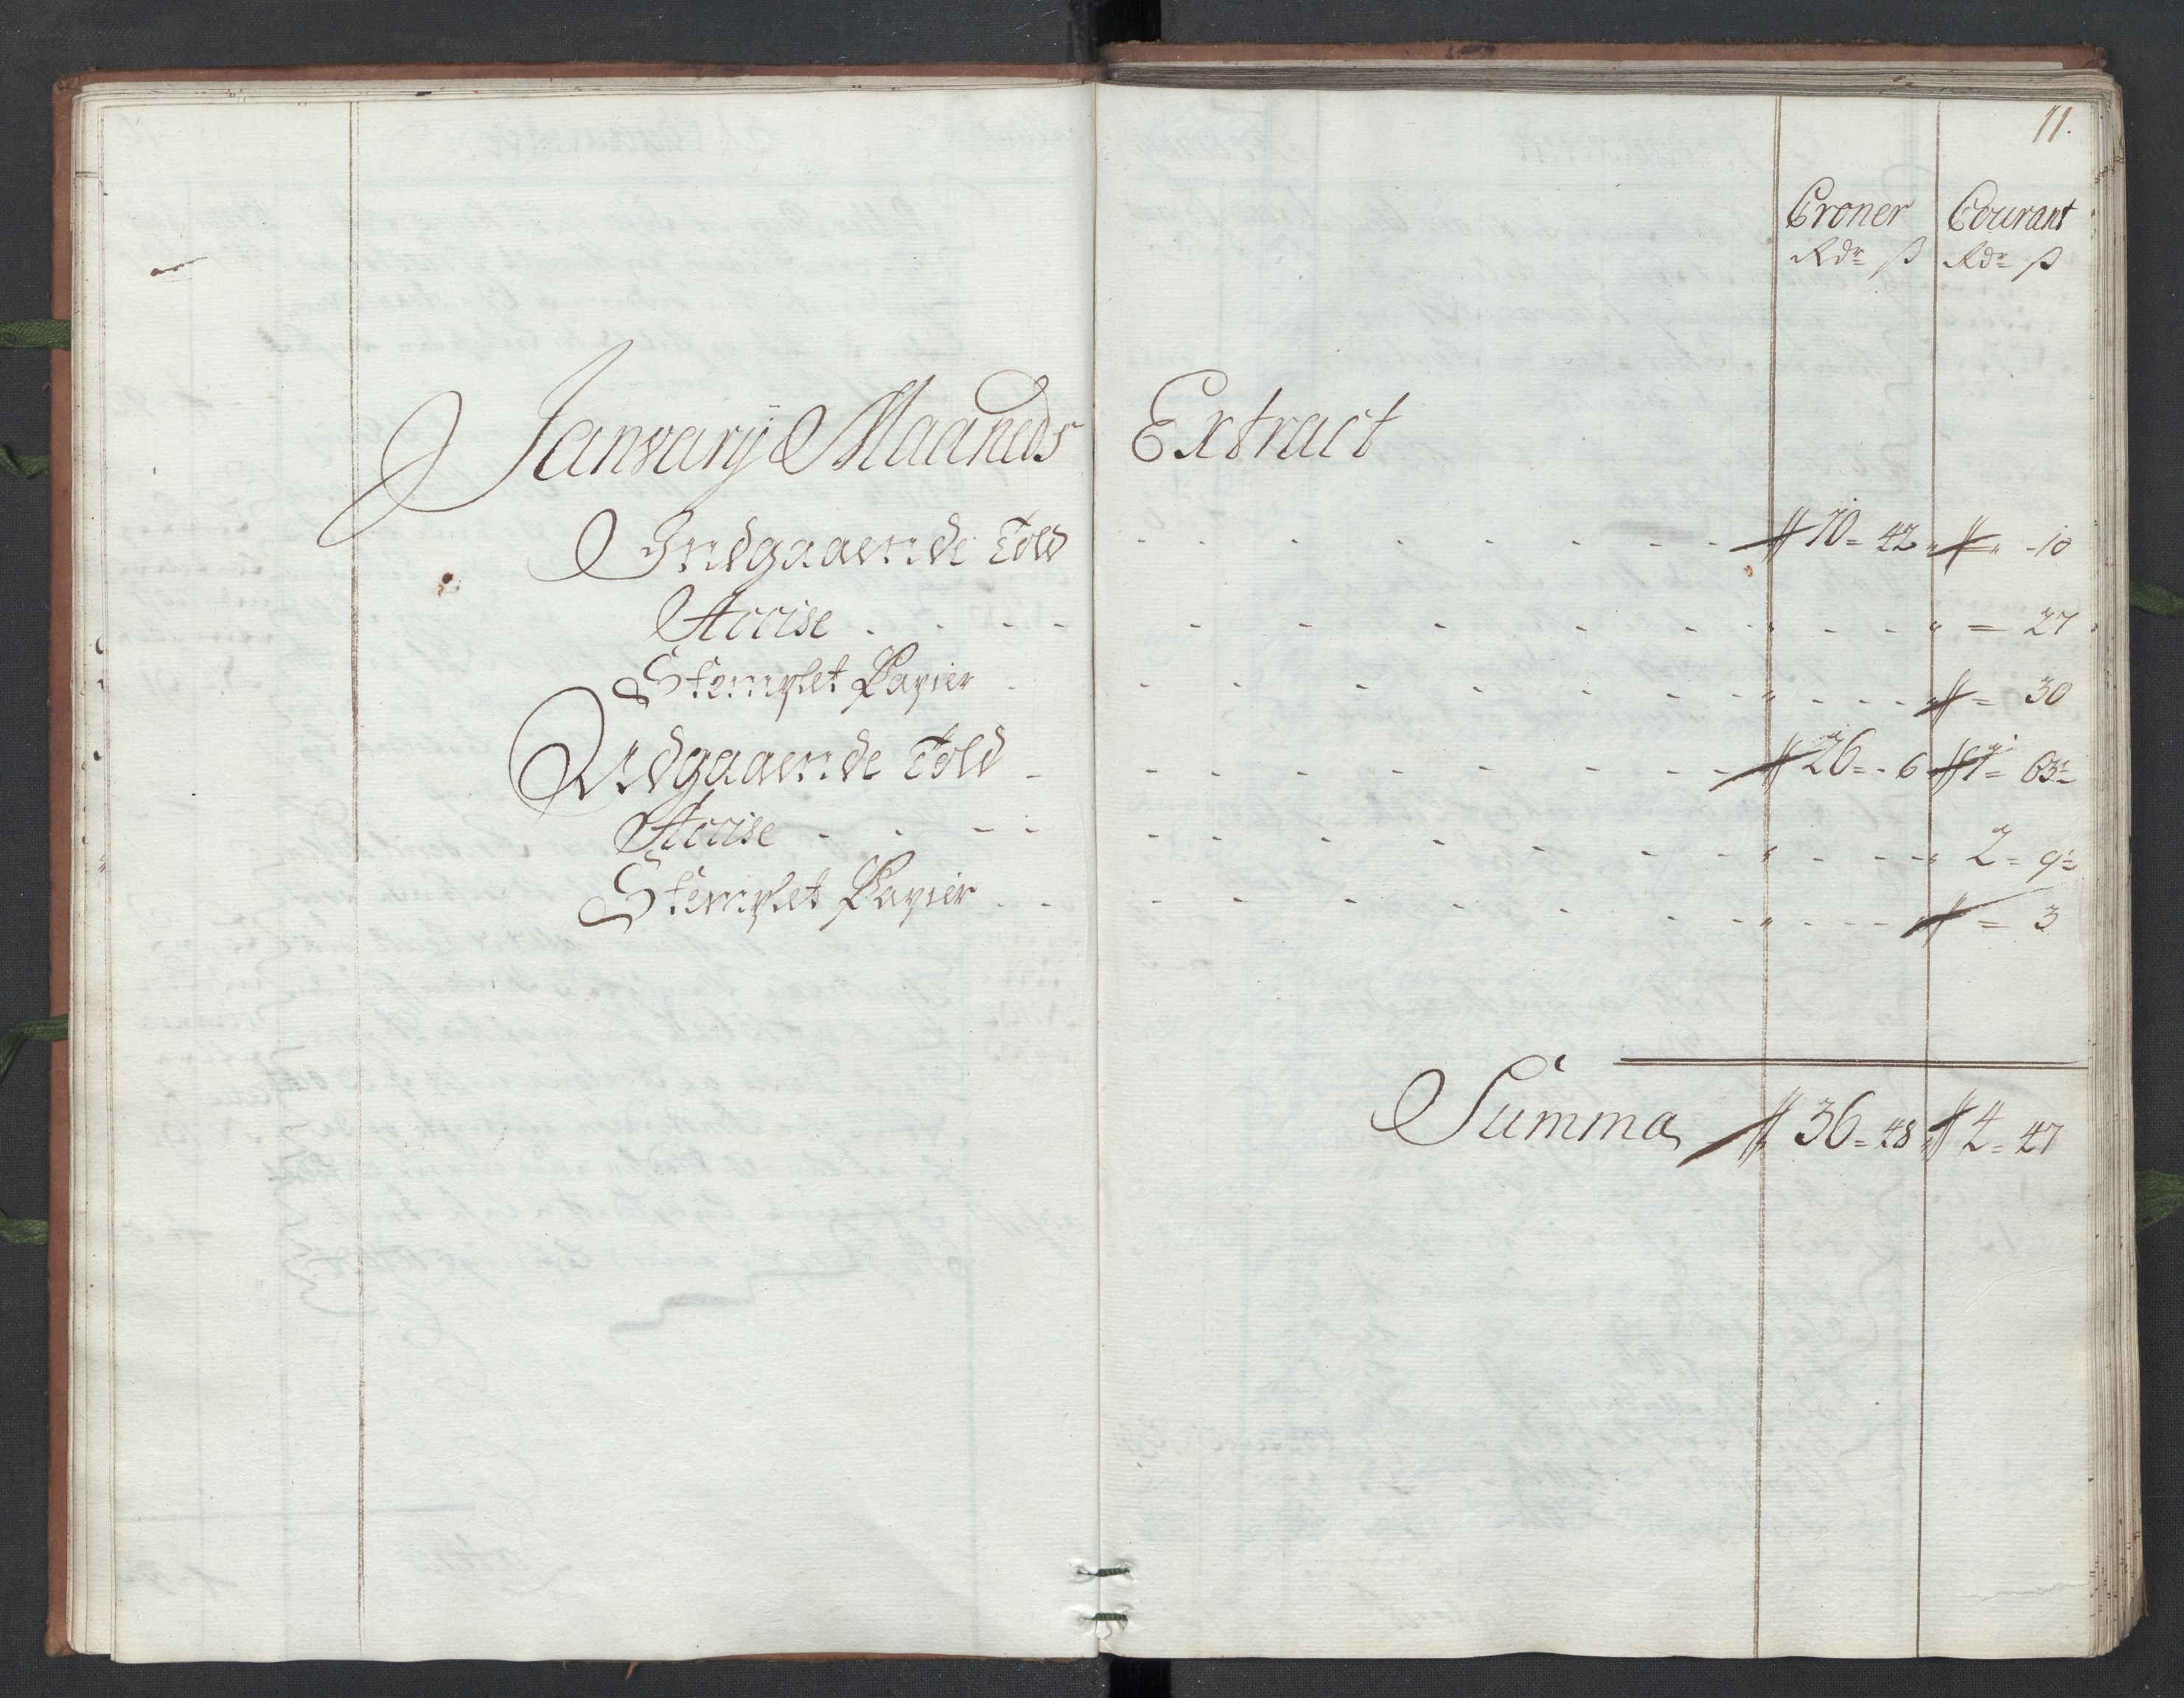 11.
Croner Courant
Rdr ß Rdr ß
Janvarij Maaneds Extract
Indgaaende Told - - - - - - - - 10 = 42 " " - 10
Accise - - - - - - - - - - " - - - " = 27
Stemplet Papier - - - - - - - " - - - - " = 30
Udgaaende Told - - - - - - - - 26 = - 6 1 = 63½
Accise - - - - - - - - - - " - - - - " 2 = 9½
Stemplet Papier - - - - - - - - - " - - - - = 3
Summa 36 = 48 4 = 47